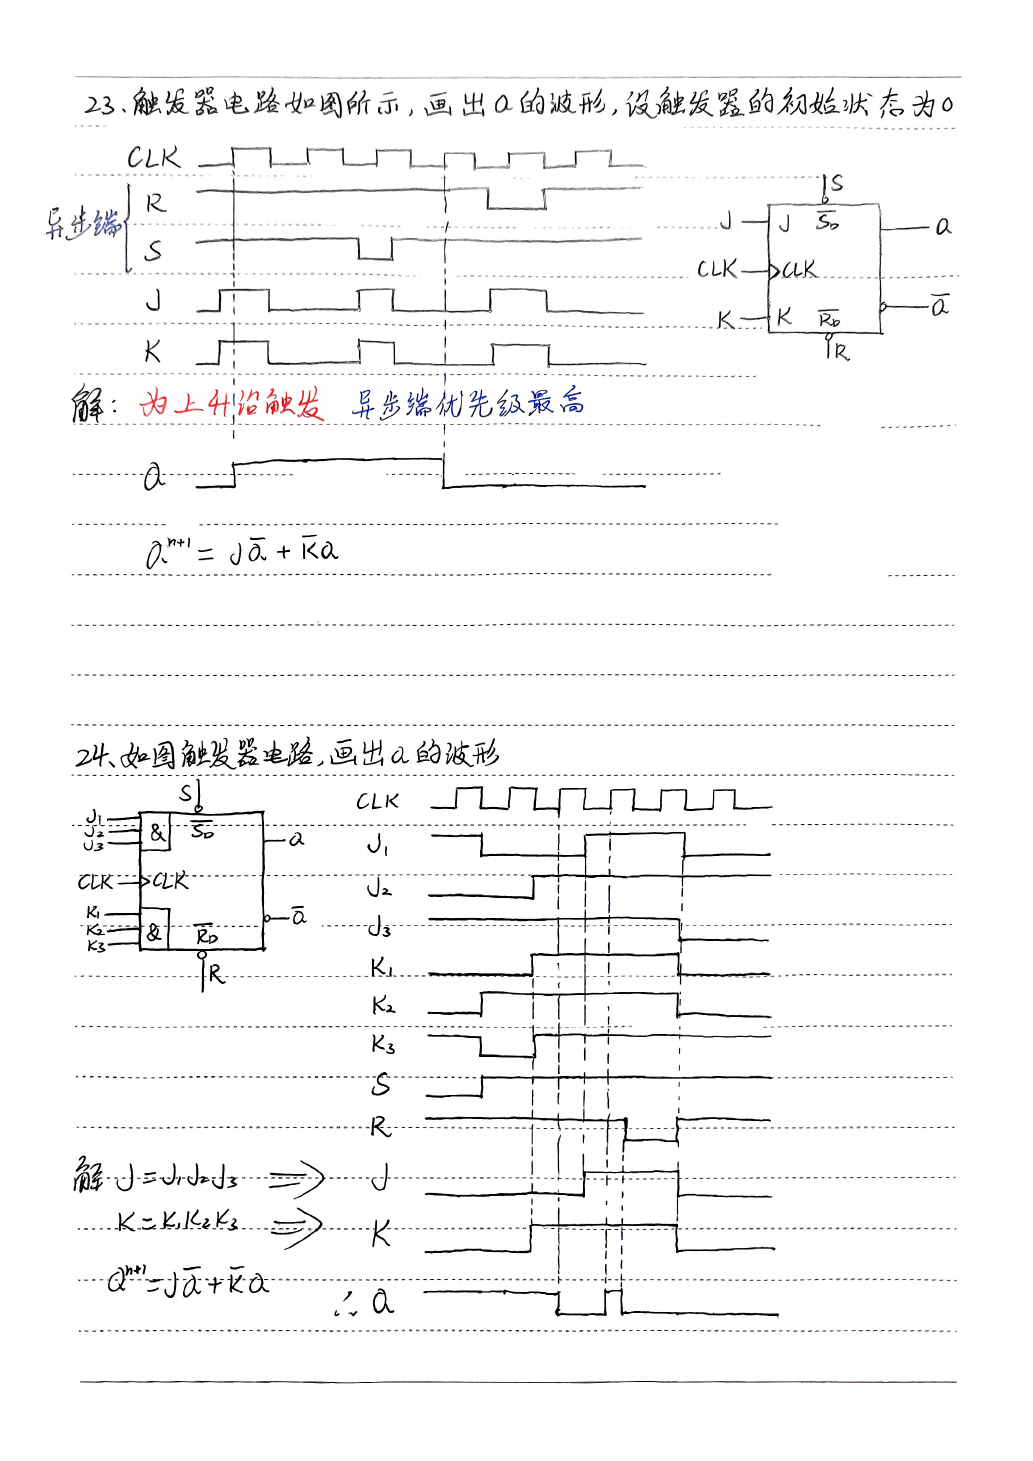 23、触发器电路如图所示,画出Q的波形,设触发器的初始状态为0
CLK
异步端
R
S
J
K
S
J J S̅D Q
CLK CLK
K K R̅D Q̅
R
解: 为上升沿触发 异步端优先级最高
Q
Qⁿ⁺¹ = JQ̅ + K̅Q
24、如图触发器电路,画出Q的波形
S
J₁
J₂ & S̅D Q
J₃
CLK CLK
K₁ Q̅
K₂ & R̅D
K₃
R
CLK
J₁
J₂
J₃
K₁
K₂
K₃
S
R
解 J=J₁J₂J₃ ⇒ J
K=K₁K₂K₃ ⇒ K
Qⁿ⁺¹=JQ̅+K̅Q
∴ Q